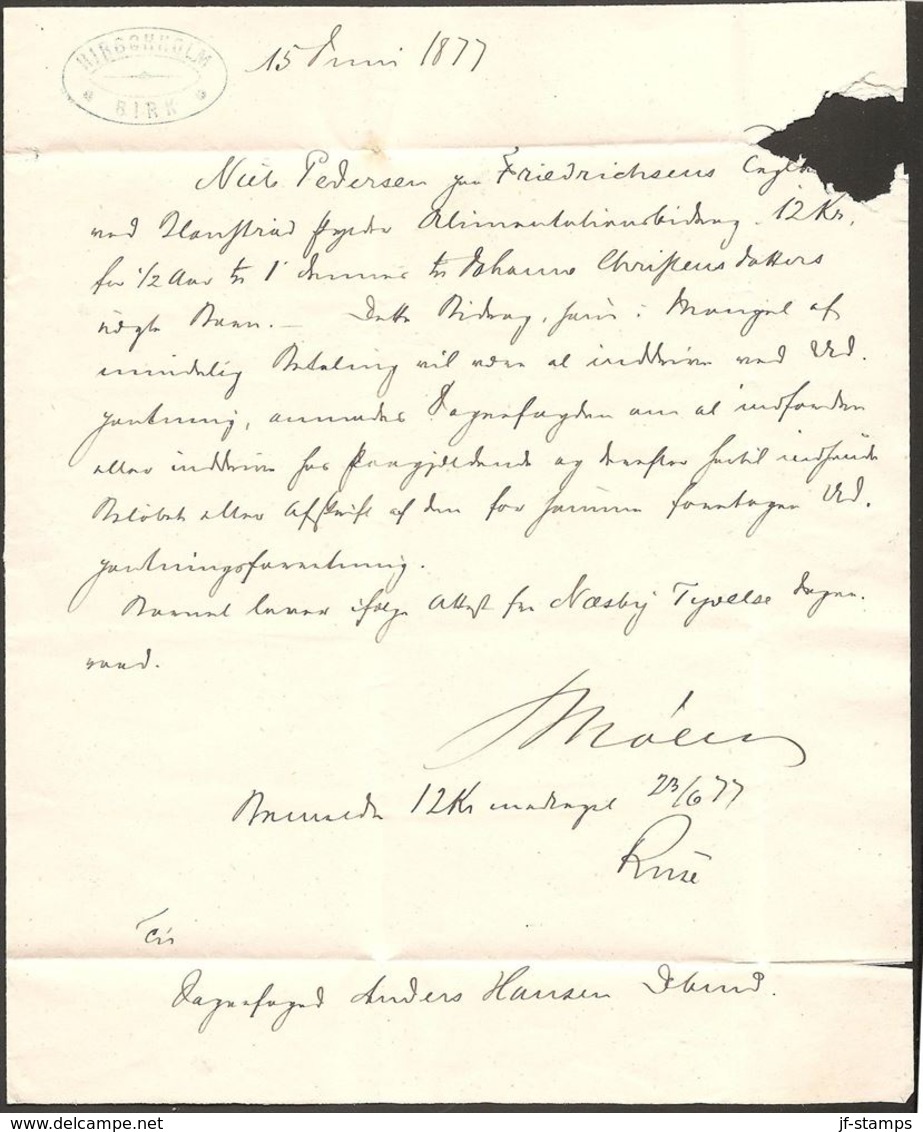 HIRSCHHOLM
BIRK
15 Juni 1877
Niels Pedersen paa Friedrichsens
ved skylder Alimentationsbidrag 12 Kr.
for 1/2 Aar til 1 dennes til Johanne Christensdatters
uægte Barn. — Dette Bidrag, som i Mangel af
mindelig Betaling vil være at inddrive ved Ud-
pantning, anmodes Sognefogden om at indfordre
eller inddrive hos Paagjældende og derefter hertil indsende
Beløbet eller Afskrift af den for samme foretagen Ud-
pantningsforretning.
Barnet lever ifølge Attest fra Næsby Tyvelse Sogne-
raad.
12 Kr modtaget 23/6 77
Til
Sognefoged Anders Hansen
jf-stamps